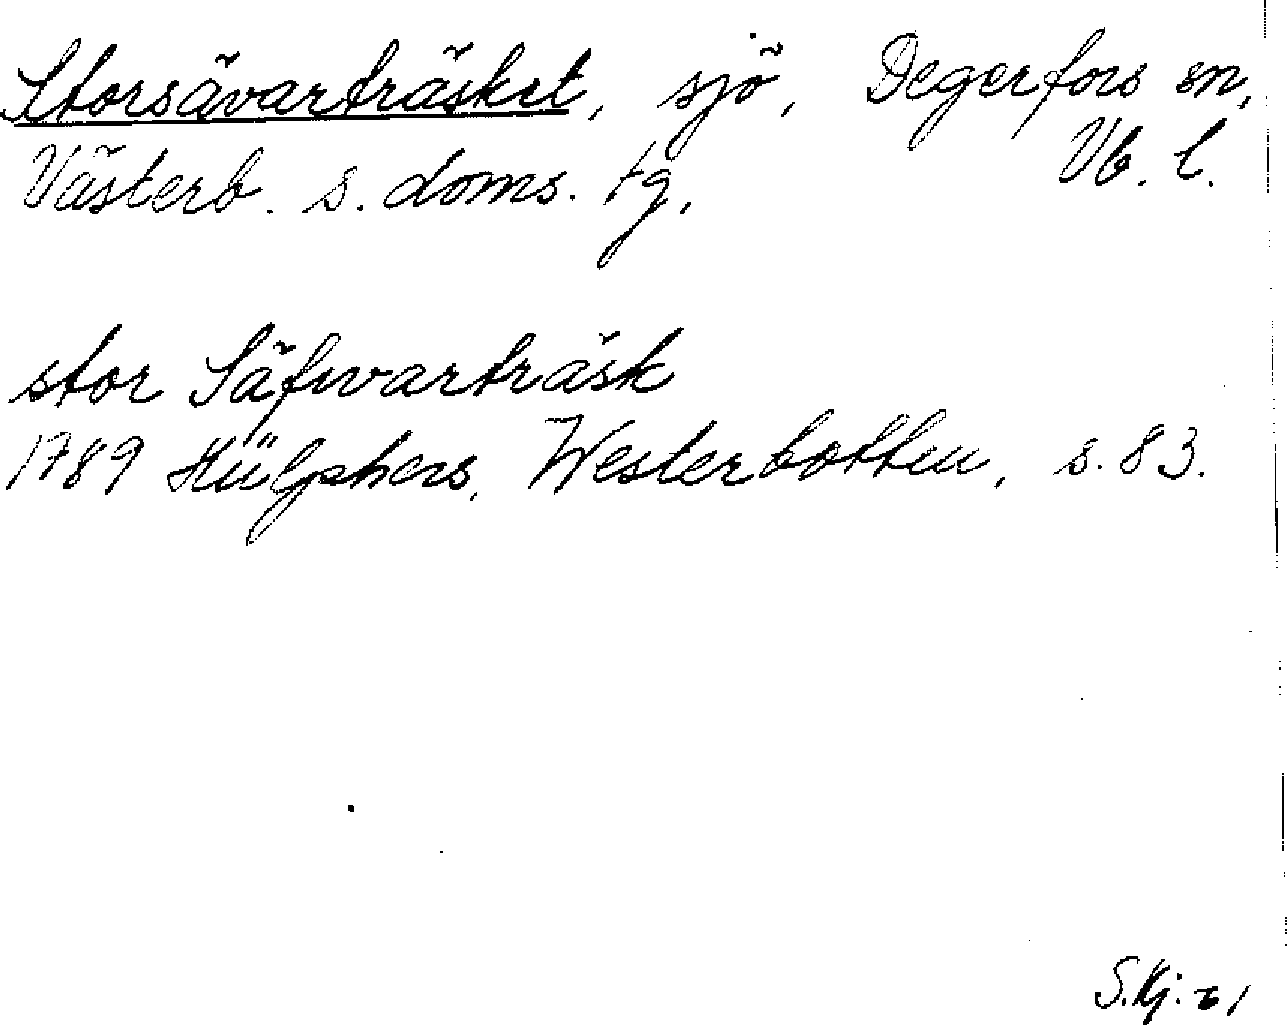 Storsävarträsket, sjö, Degerfors sn,
Västerb. s. doms. tg, Vb. l.
stor Säfwarträsk
1789 Hülphers, Westerbotten, s. 83.
S.Kj.